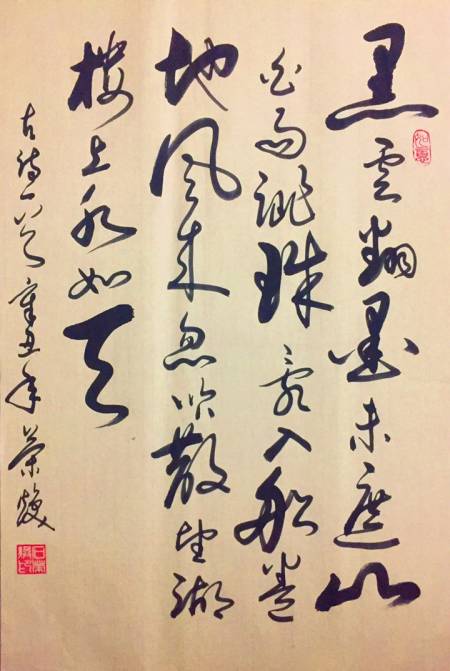 黑雲翻墨未遮山
白雨跳珠亂入船卷
地風来忽吹散望湖
樓上水如天
古詩一首辛丑年榮
如意